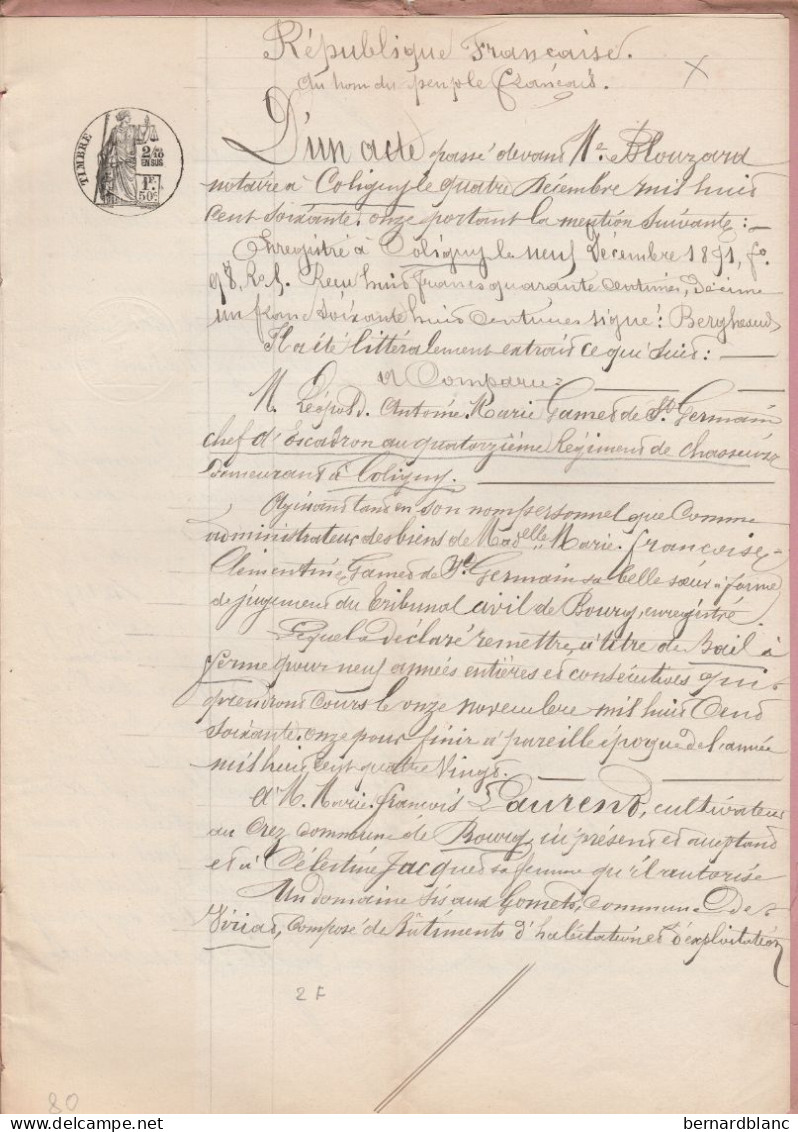 République Française.
Au nom du peuple français.
TIMBRE
2/10
EN SUS
50c.
D'un acte passé devant Me Blouzard
notaire à Coligny le quatre Décembre mil huit
cent soixante. onze portant la mention suivante : —
Enregistré à Coligny le neuf Décembre 1871, fo.
98, Reçu huit francs quarante centimes, Décime
un franc soixante huit centimes signé :
Il a été littéralement extrait ce qui suit : —
a Comparu =
M. Léopold. Antoine. Marie Gamed de St. Germain
chef d'Escadron au quatorzième Régiment de chasseurs
Demeurant à Coligny.
Agissant tant en son nom personnel que comme
administrateur des biens de Madelle Marie. françoise
Clémentine Gamed de St. Germain sa belle sœur à forme
de jugement du Tribunal civil de Bourg, enregistré.
Lequel a déclaré remettre, à titre de Bail à
ferme pour neuf années entières et consécutives qui
prendront cours le onze novembre mil huit Cent
soixante. onze pour finir à pareille époque de l'année
mil huit cent quatre Vingt.
à M. Marie. françois Laurent, cultivateur
au Crez commune de Bourg, ici présent et acceptant
et à Célestine Jacquet sa femme qu'il autorise
Un domaine sis aux Gomets, commune De
Viriat, composé de Bâtiments d'habitation et d'exploitation
2 F
80
bernardblanc